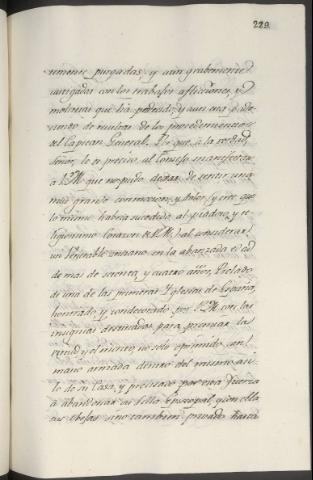 229
purgadas, y aun grabemente
castigadas con los trabajos, aflicciones, y
molestias que ha padecido, y aun està pade-
ciendo de resultas de los procedimientos
del Capitan General. Porque à la verdad,
Señor, le es preciso al Consejo manifestar
à V.M. que no pudo dejar de sentir una
mui grande conmocion, y dolor (y cree que
lo mismo habrà sucedido al piadoso, y re-
ligiosisimo Corazon de V.M.) al considerar
un Venerable anciano en la abanzada edad
de mas de setenta, y cuatro años, Prelado
de una de las primeras Yglesias de España,
honrrado, y condecorado por V.M. con las
insignias destinadas para premiar la
virtud, y el merito, no solo oprimido con
mano armada dentro del mismo asi-
lo de su Casa, y precisado por viva fuerza
à abandonar su Silla Episcopal, y con ella
sus obejas, sino tambien privado hasta